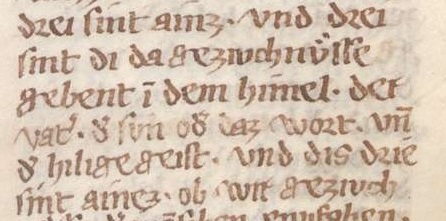 drei sint ainz. vnd drei
sint di da gezivchnv̊sse
gebent ī dem himel. der
vat̾. d̾ svn od̾ daz wort. vn̄
d̾ hilige geist. vnd dis drie
sint ainez. ob wir gezivch